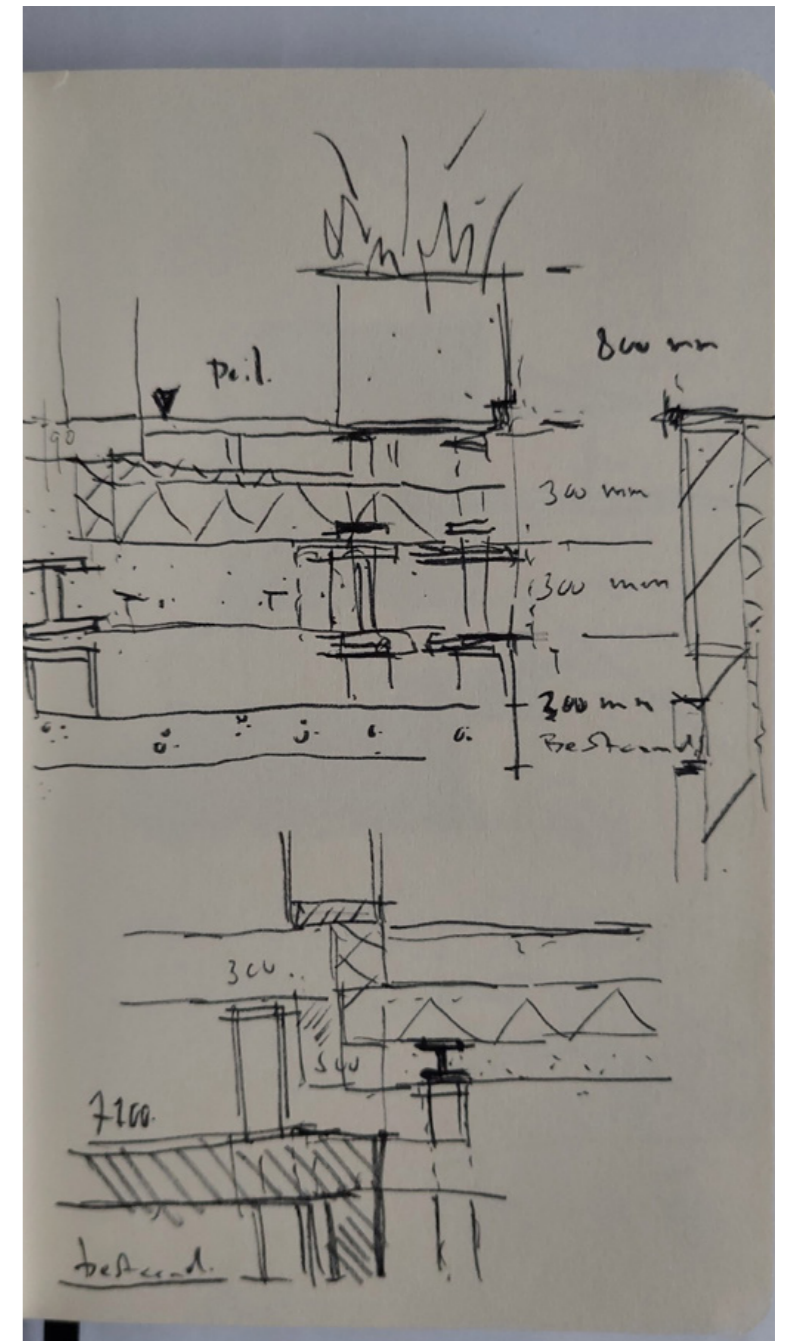 800 mm
Peil.
90
300 mm
300 mm
300 mm
Bestaand
300
300
7200
bestaand.